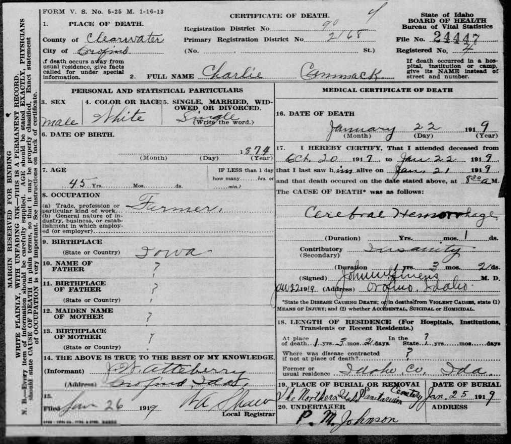 FORM V. S. No. 5-25 M. 1-16-13
CERTIFICATE OF DEATH.
State of Idaho
BOARD OF HEALTH
Bureau of Vital Statistics
1. PLACE OF DEATH.
County of Clearwater
City of Orofino
Registration District No. 90
Primary Registration District No. 2168
File No. 24447
(No. St.)
Registered No.
If death occurs away from usual residence, give facts called for under special information.
If death occurred in a hospital, institution or camp, give its NAME instead of street and number.
2. FULL NAME Charlie Cammack
PERSONAL AND STATISTICAL PARTICULARS
3. SEX
male
4. COLOR OR RACE
White
5. SINGLE, MARRIED, WIDOWED, OR DIVORCED.
Single
(Write the word.)
6. DATE OF BIRTH.
1874
(Month) (Day) (Year)
7. AGE
45 Yrs. mos. ds.
IF LESS than 1 day
how many hrs. or mins.?
8. OCCUPATION
(a) Trade, profession or particular kind of work.
(b) General nature of industry, business, or establishment in which employed (or employer).
Farmer,
9. BIRTHPLACE
(State or Country)
Iowa
10. NAME OF FATHER
?
11. BIRTHPLACE OF FATHER
(State or Country)
?
12. MAIDEN NAME OF MOTHER
?
13. BIRTHPLACE OF MOTHER
(State or Country)
?
14. THE ABOVE IS TRUE TO THE BEST OF MY KNOWLEDGE.
(Informant)
(Address) Orofino Idaho
15.
Filed Jan 26 1919
Local Registrar
MEDICAL CERTIFICATE OF DEATH
16. DATE OF DEATH
January 22 1919
(Month) (Day) (Year)
17. I HEREBY CERTIFY, That I attended deceased from
20 1917 to Jan 22 1919
that I last saw him alive on Jan. 21 1919
and that death occurred on the date stated above, at M.
The CAUSE OF DEATH* was as follows:
Cerebral Hemorrhage
(Duration) Yrs. mos. 1 ds.
Contributory Insanity
(Secondary)
(Duration) 1 Yrs. 3 mos. 2 ds.
(Signed) M. D.
1919 (Address) Orofino, Idaho
*State the DISEASE CAUSING DEATH; or in deaths from VIOLENT CAUSES, state (1) MEANS OF INJURY; and (2) whether ACCIDENTAL, SUICIDAL or HOMICIDAL.
18. LENGTH OF RESIDENCE (For Hospitals, Institutions, Transients or Recent Residents.)
At place of death 1 yrs. 3 mos. 2 days In the State ? yrs. mos. days
Where was disease contracted if not at place of death? ?
Former or usual residence Idaho Co, Ida.
19. PLACE OF BURIAL OR REMOVAL
The Northern Idaho Sanitarium Cemetery
DATE OF BURIAL
Jan. 25 1919
20. UNDERTAKER
P. M. Johnson
ADDRESS
MARGIN RESERVED FOR BINDING
WRITE PLAINLY, WITH UNFADING INK—THIS IS A PERMANENT RECORD.
N. B.—Every item of information should be carefully supplied. AGE should be stated EXACTLY. PHYSICIANS should state CAUSE OF DEATH in plain terms, so that it may be properly classified. Exact statement of OCCUPATION is very important. See instructions on back of certificate.